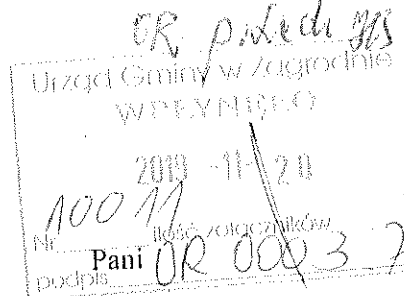 OR
Urząd Gminy w Zagrodnie
WPŁYNĘŁO
2019 -11- 20
Nr 10011 ilość załączników
Pani OR 0003 7
podpis